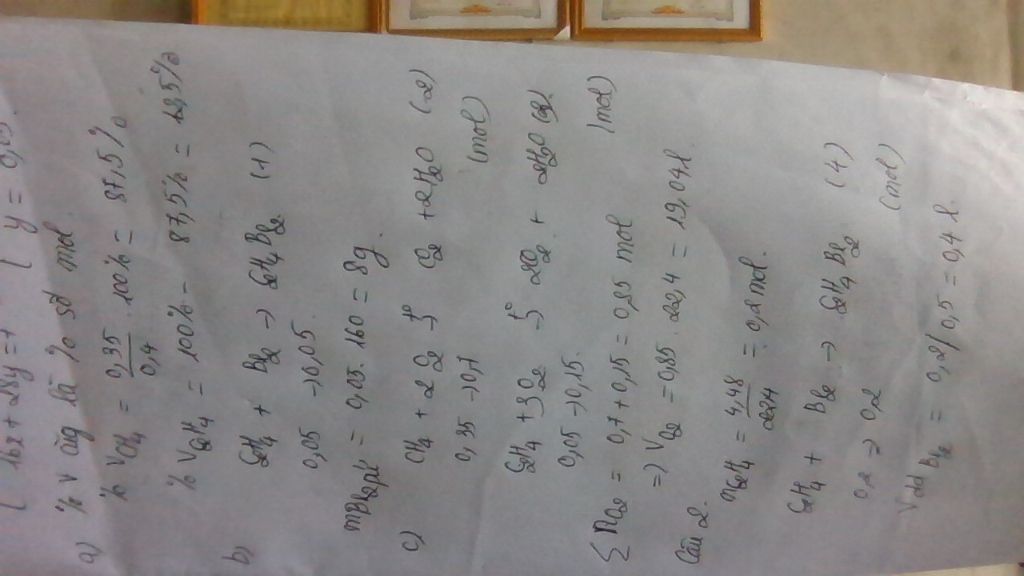 16x + 28y = 7 { y = 0,05.
a) % V cũg là % số mol
% V CH4 = 0,35/0,4 . 100% = 87,5%
% V C2H4 = 100% - 87,5% = 12,5%
b) C2H4 + Br2 → C2H4Br2 (1)
0,05 → 0,05.
mBr2pứ = 0,05. 160 = 8g.
c) CH4 + 2O2 →t° CO2 + 2H2O (2)
0,35 → 0,7 (mol)
C2H4 + 3O2 →t° 2CO2 + 2H2O
0,05 → 0,15. (mol)
∑ nO2 = 0,7 + 0,15 = 0,85 mol
=> VO2 = 0,85. 22,4 = 19,04 l.
Câu 2.
nC2H4 = 4,48/22,4 = 0,2 mol.
C2H4 + Br2 → C2H4Br2 (1)
0,2 → 0,2 (mol)
Vdd Br2 = 0,2/0,5 = 0,4 l.